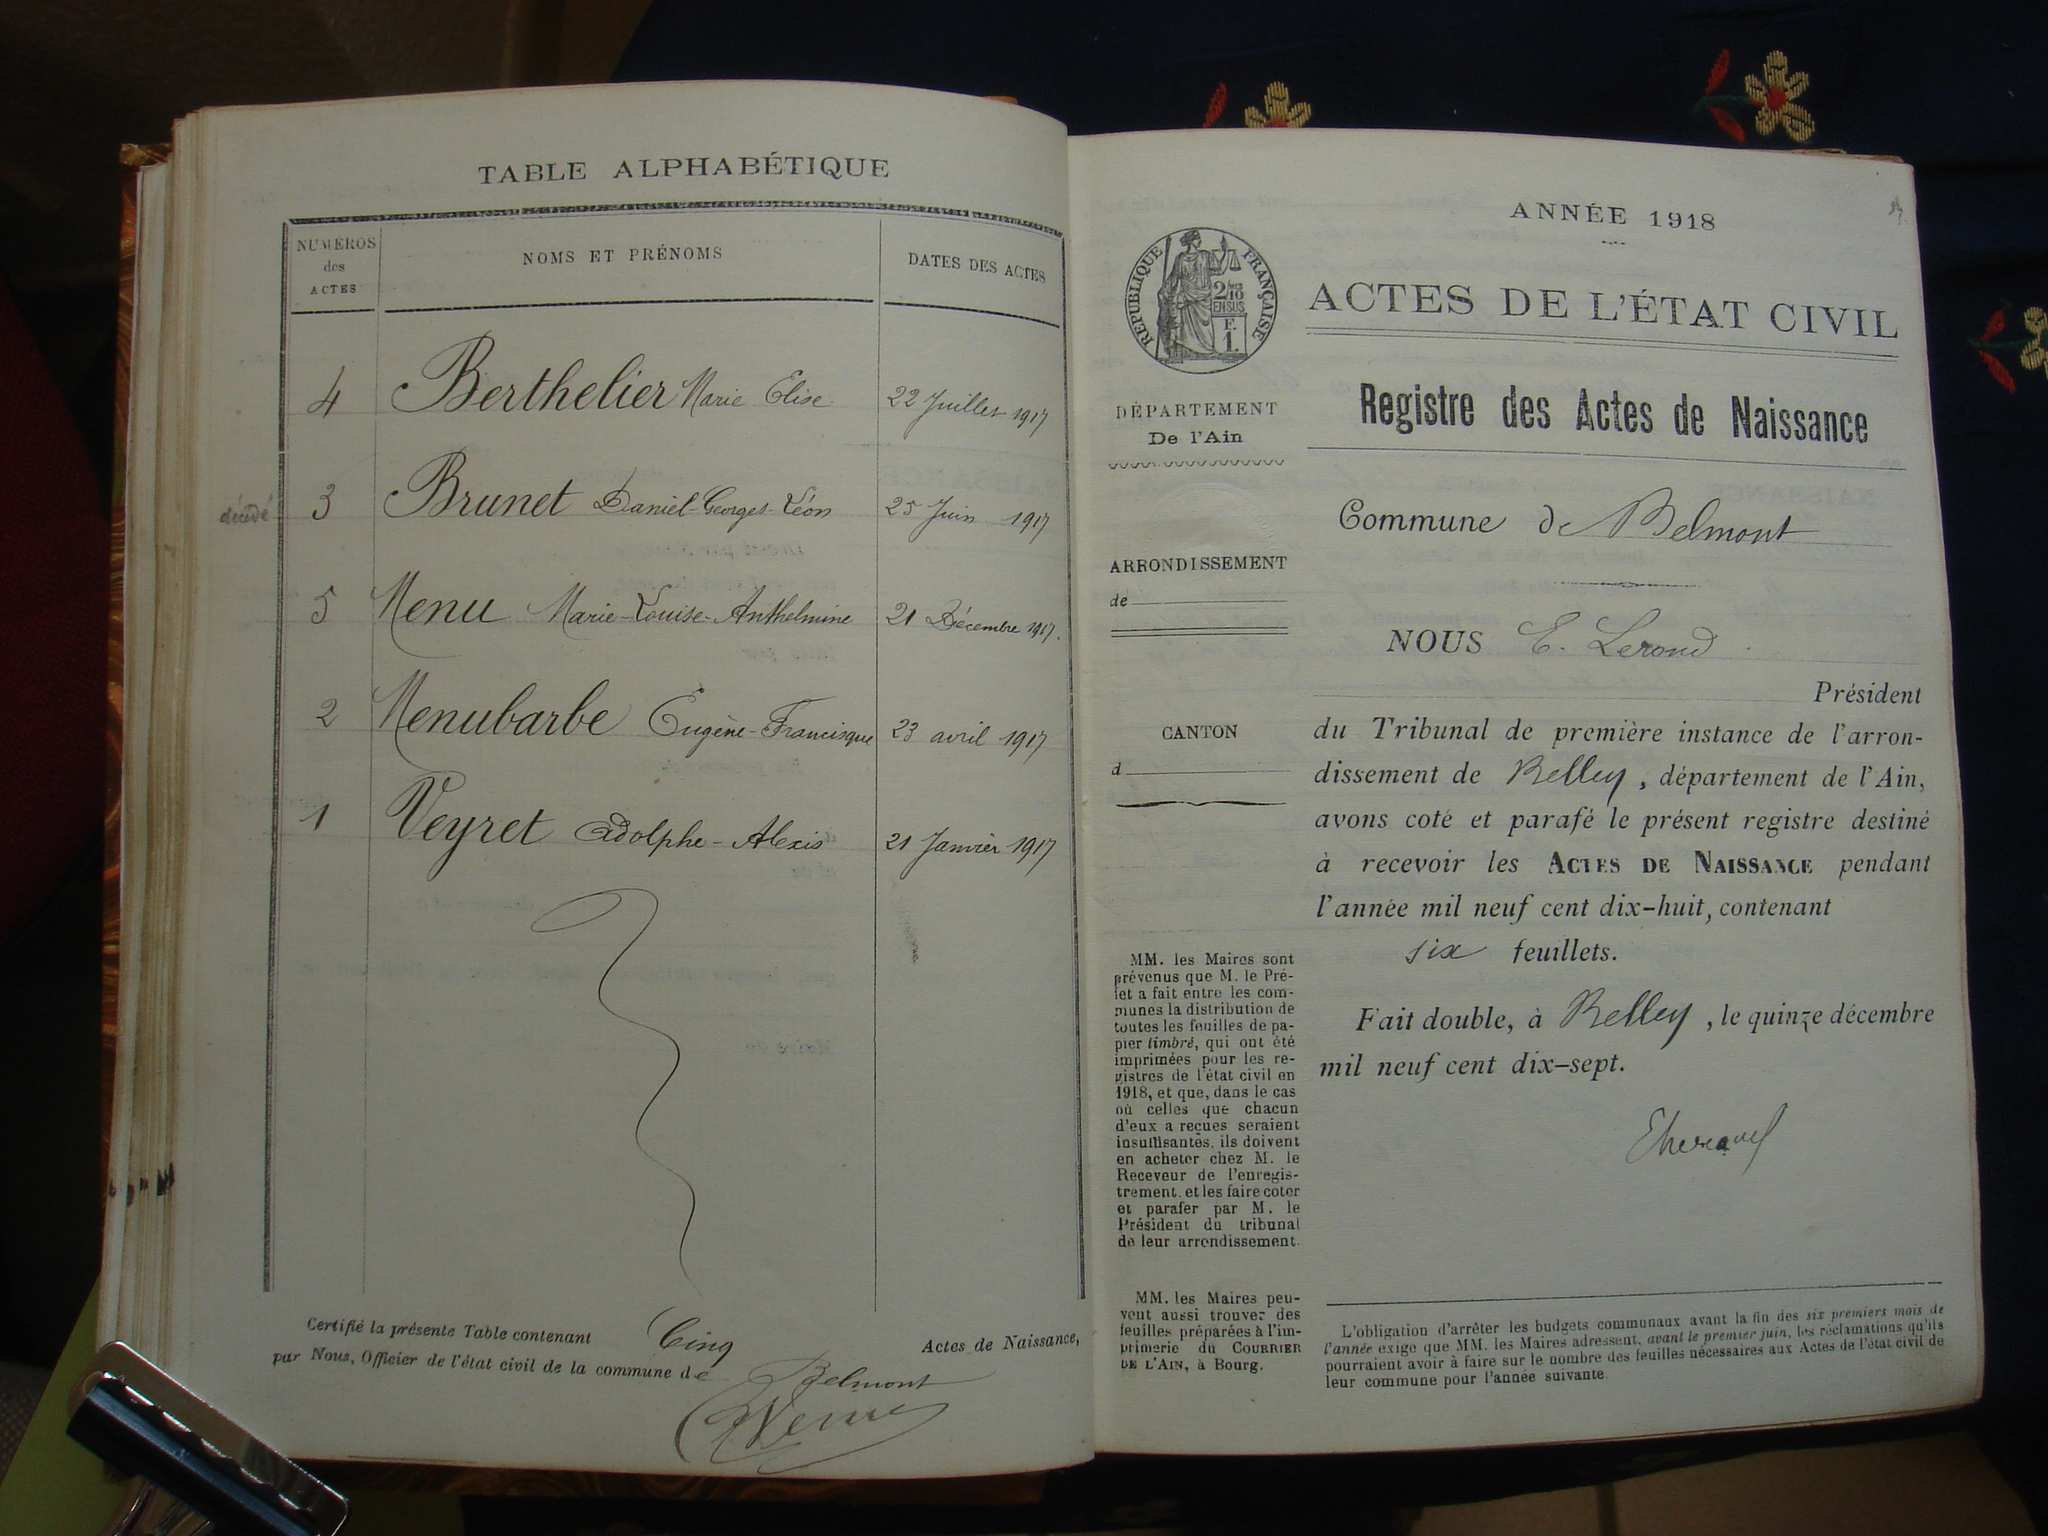 TABLE ALPHABÉTIQUE
NUMÉROS
des
ACTES
NOMS ET PRÉNOMS
DATES DES ACTES
4 Berthelier Marie Elise 22 Juillet 1917
décédé 3 Brunet Daniel-Georges-Léon 25 Juin 1917
5 Menu Marie-Louise-Anthelmine 21 Décembre 1917.
2 Menubarbe Eugène-Francisque 23 avril 1917
1 Veyret Adolphe-Alexis 21 Janvier 1917
Certifié la présente Table contenant Cinq Actes de Naissance,
par Nous, Officier de l'état civil de la commune de Belmont
ANNÉE 1918
RÉPUBLIQUE FRANÇAISE
2/10
EN SUS
F.
1.
ACTES DE L'ÉTAT CIVIL
Registre des Actes de Naissance
DÉPARTEMENT
De l'Ain
ARRONDISSEMENT
de
CANTON
d
MM. les Maires sont
prévenus que M. le Pré-
fet a fait entre les com-
munes la distribution de
toutes les feuilles de pa-
pier timbré, qui ont été
imprimées pour les re-
gistres de l'état civil en
1918, et que, dans le cas
où celles que chacun
d'eux a reçues seraient
insuffisantes, ils doivent
en acheter chez M. le
Receveur de l'enregis-
trement, et les faire coter
et parafer par M. le
Président du tribunal
de leur arrondissement.
MM. les Maires peu-
vent aussi trouver des
feuilles préparées à l'im-
primerie du COURRIER
DE L'AIN, à Bourg.
Commune de Belmont
NOUS E. Lerond
Président
du Tribunal de première instance de l'arron-
dissement de Belley, département de l'Ain,
avons coté et parafé le présent registre destiné
à recevoir les ACTES DE NAISSANCE pendant
l'année mil neuf cent dix-huit, contenant
six feuillets.
Fait double, à Belley, le quinze décembre
mil neuf cent dix-sept.
L'obligation d'arrêter les budgets communaux avant la fin des six premiers mois de
l'année exige que MM. les Maires adressent, avant le premier juin, les réclamations qu'ils
pourraient avoir à faire sur le nombre des feuilles nécessaires aux Actes de l'état civil de
leur commune pour l'année suivante.